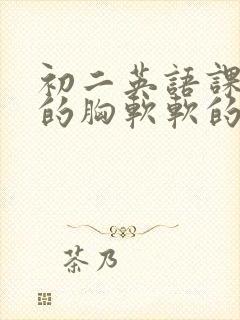 初二英語課
的胸軟軟的
茶乃